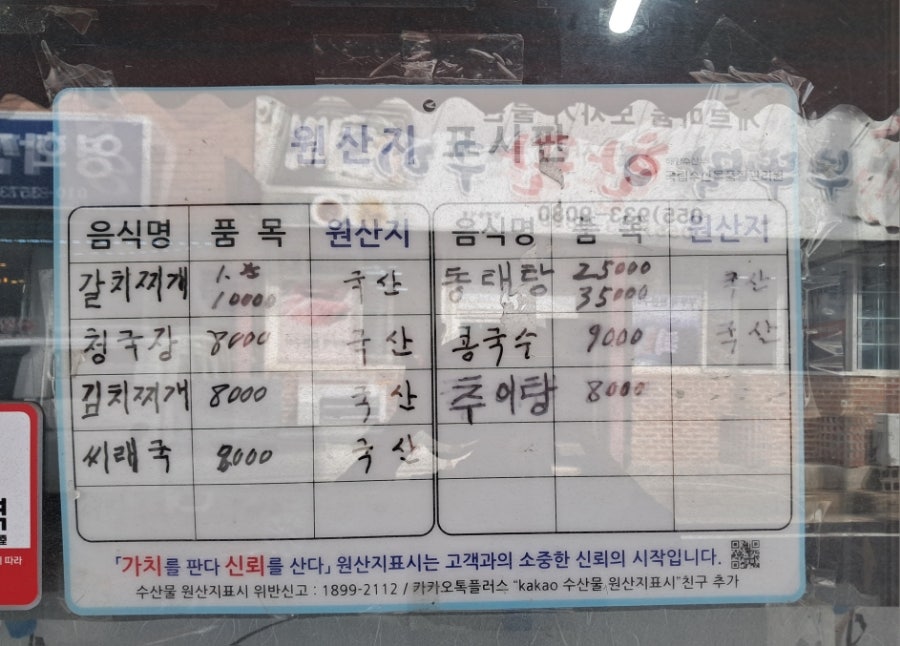 원산지 표시판
음식명 품목 원산지 음식명 품목 원산지
갈치찌개 1.人 10000 국산 동태탕 25000 35000 국산
청국장 8000 국산 콩국수 9000 국산
김치찌개 8000 국산 추어탕 8000
씨래국 8000 국산
「가치를 판다 신뢰를 산다」 원산지표시는 고객과의 소중한 신뢰의 시작입니다.
수산물 원산지표시 위반신고 : 1899-2112 / 카카오톡플러스 "kakao 수산물 원산지표시"친구 추가